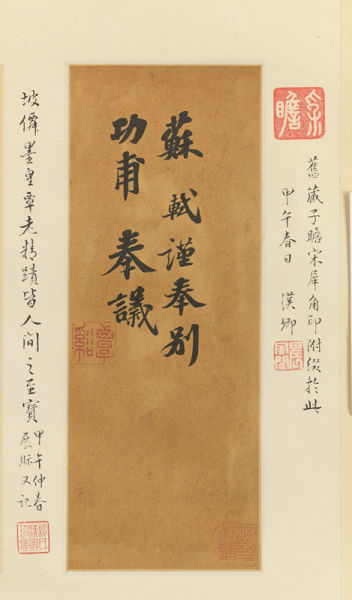 子瞻
舊藏子瞻宋犀角印附綴於此
甲午春日 漢卿
蘇軾謹奉別
功甫奉議
覃谿
坡僊墨皇覃老精蹟皆人間之至寶
甲午仲春
展眎又記